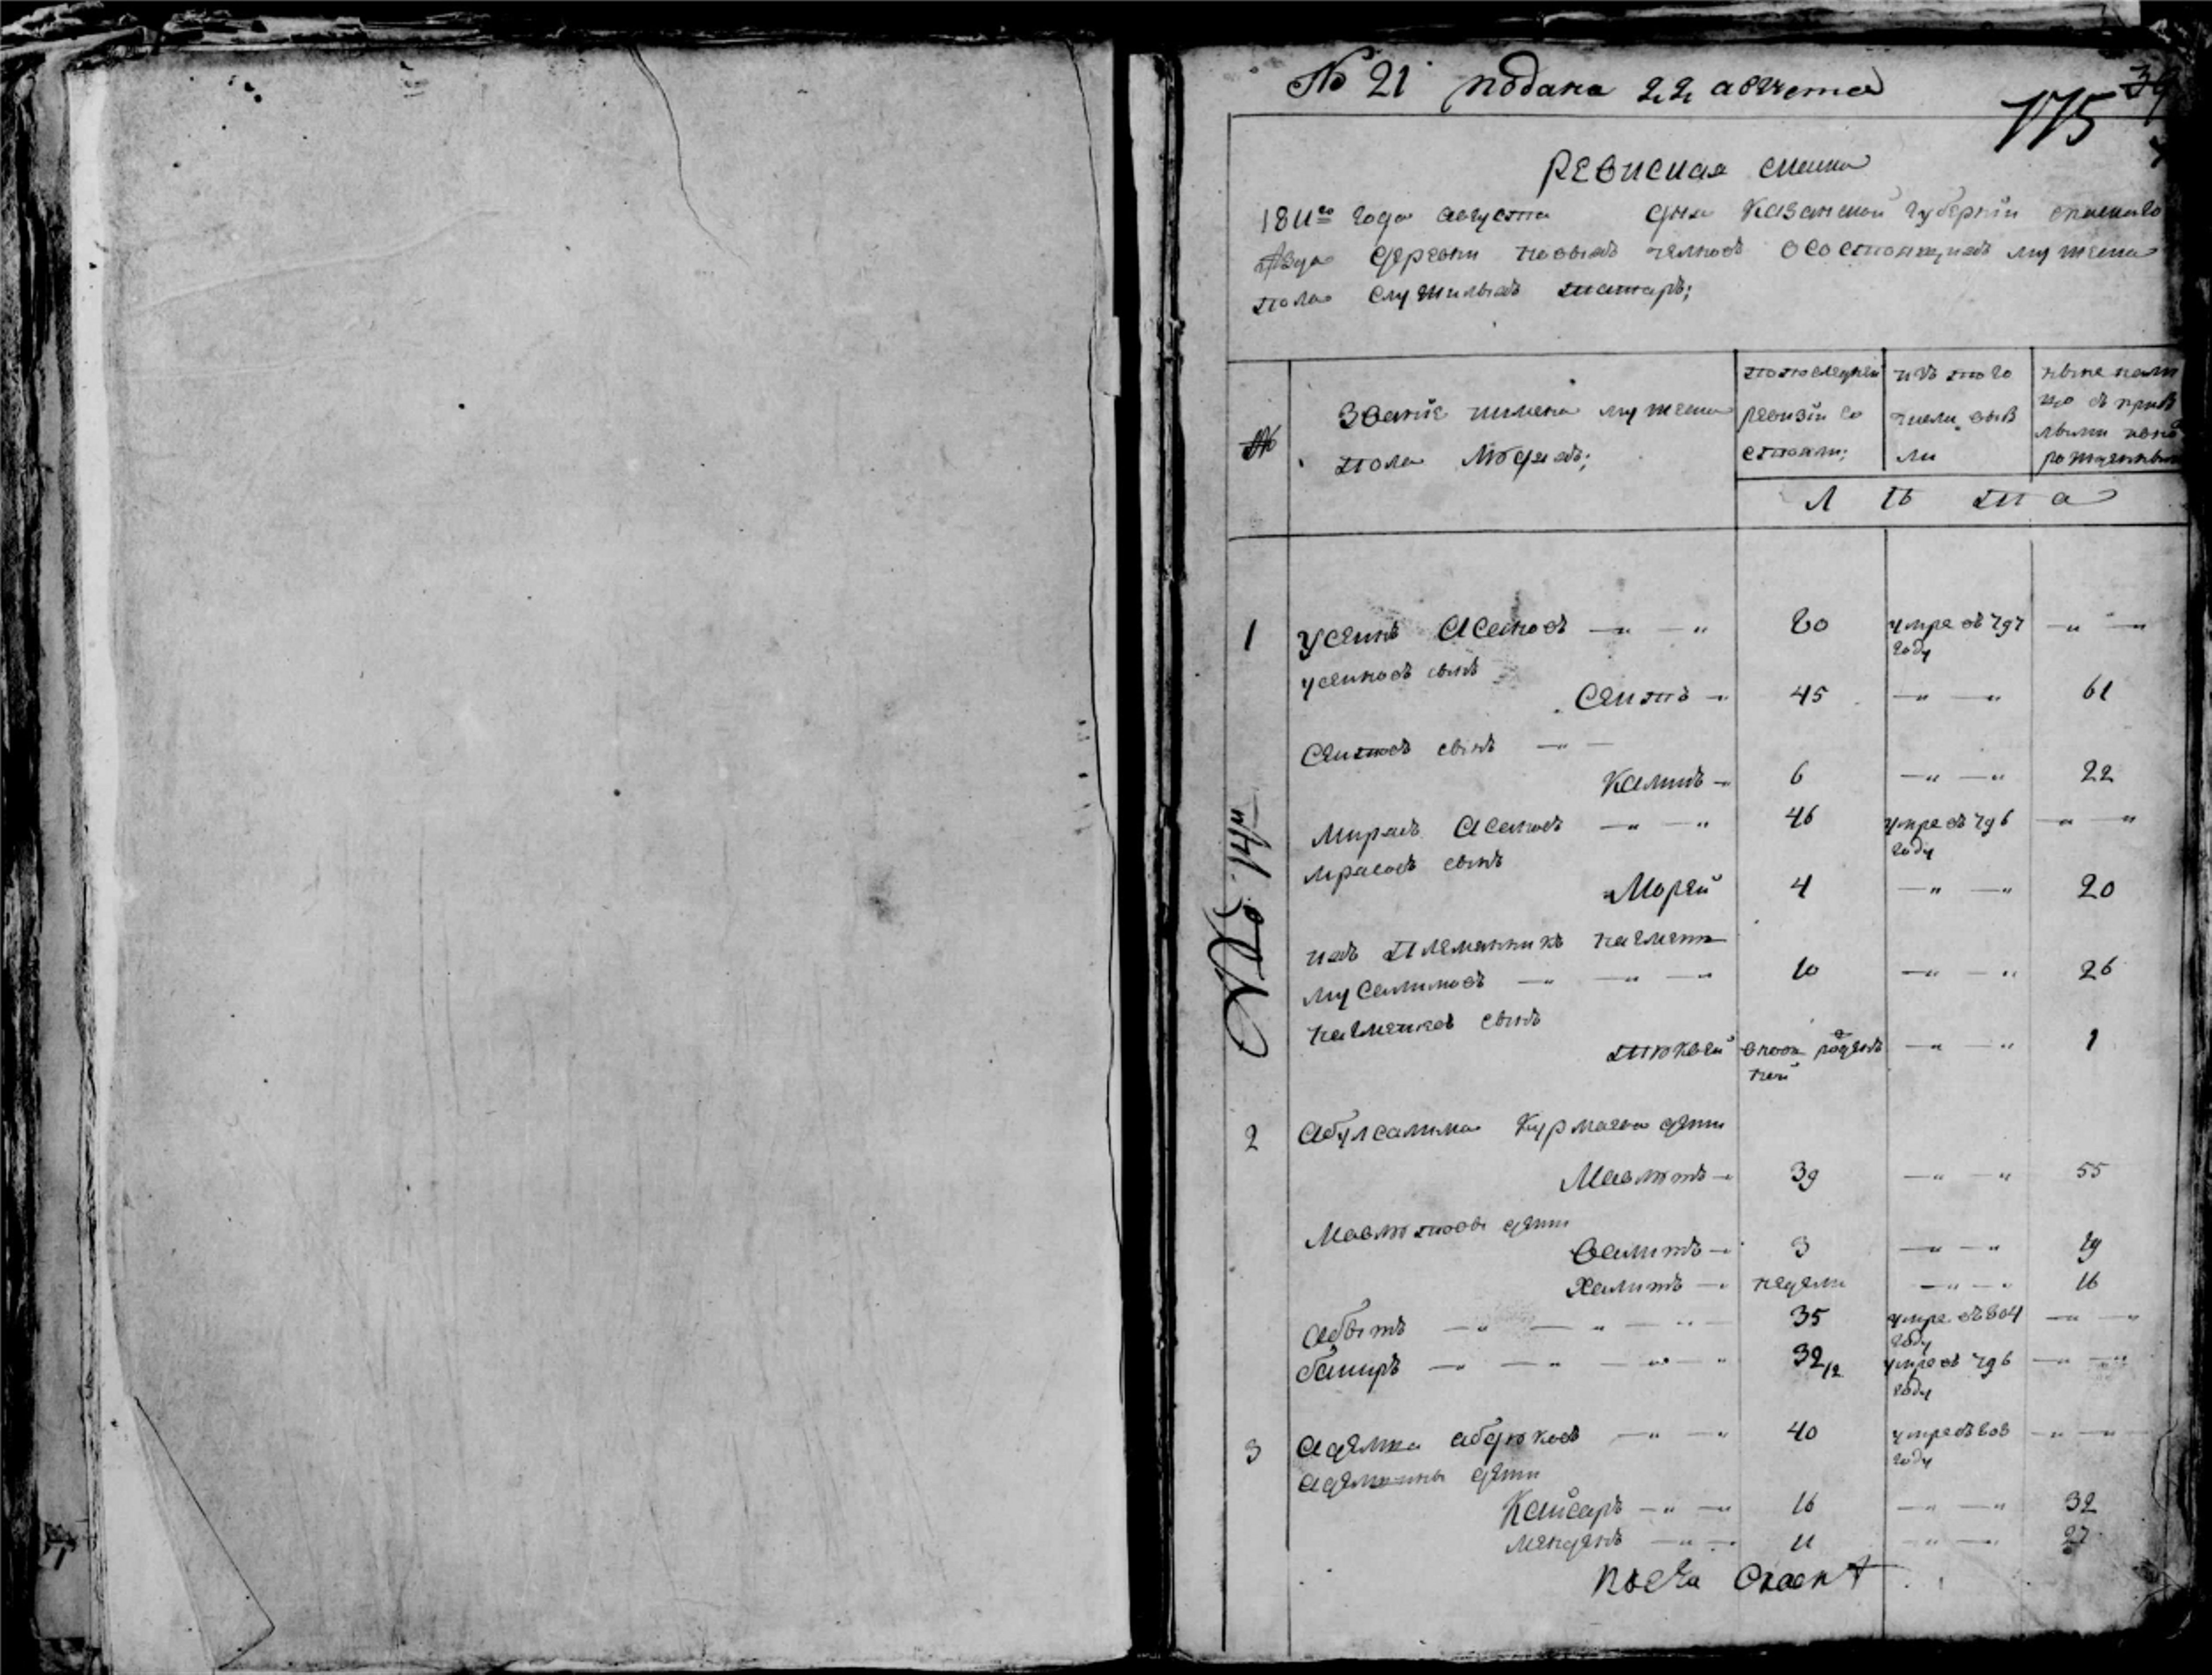 № 21 подана 22 августа
115
39
Ревиская сказка
1811го года августа дня Казанской губернїи спаскаго
уѣзда деревни новыхъ челновъ осостоящихъ мужеска
пола служилыхъ татаръ;
№
Званїе имена мужеска
пола людяхъ;
попоследней
ревизїи со
стояли;
изъ того
числа выбы
ли
ныне нали
цо съ прибы
лыми ново
рожденными
Л ѣ т а
1 Усеинъ Асановъ 80 умре въ 797 году
усеиновъ сынъ
Сеитъ 45 61
Сеитовъ сынъ
Калимъ 6 22
Мирясъ Асановъ 46 умре въ 796 году
мрясовъ сынъ
Морей 4 20
ихъ племянникъ
мусалимовъ 10 26
сынъ
вновь рожден
ной 1
2 Абулсалима Курмаева дети
Мавлютъ 39 55
Мавлютовы дети
Валитъ 3 19
Халитъ недели 16
Абытъ 35 умре въ 804 году
баширъ 32/2 умре въ 796 году
3 Аделша абдюковъ 40 умре въ 808 году
Аделшины дети
Кайсаръ 16 32
Менденъ 11 27